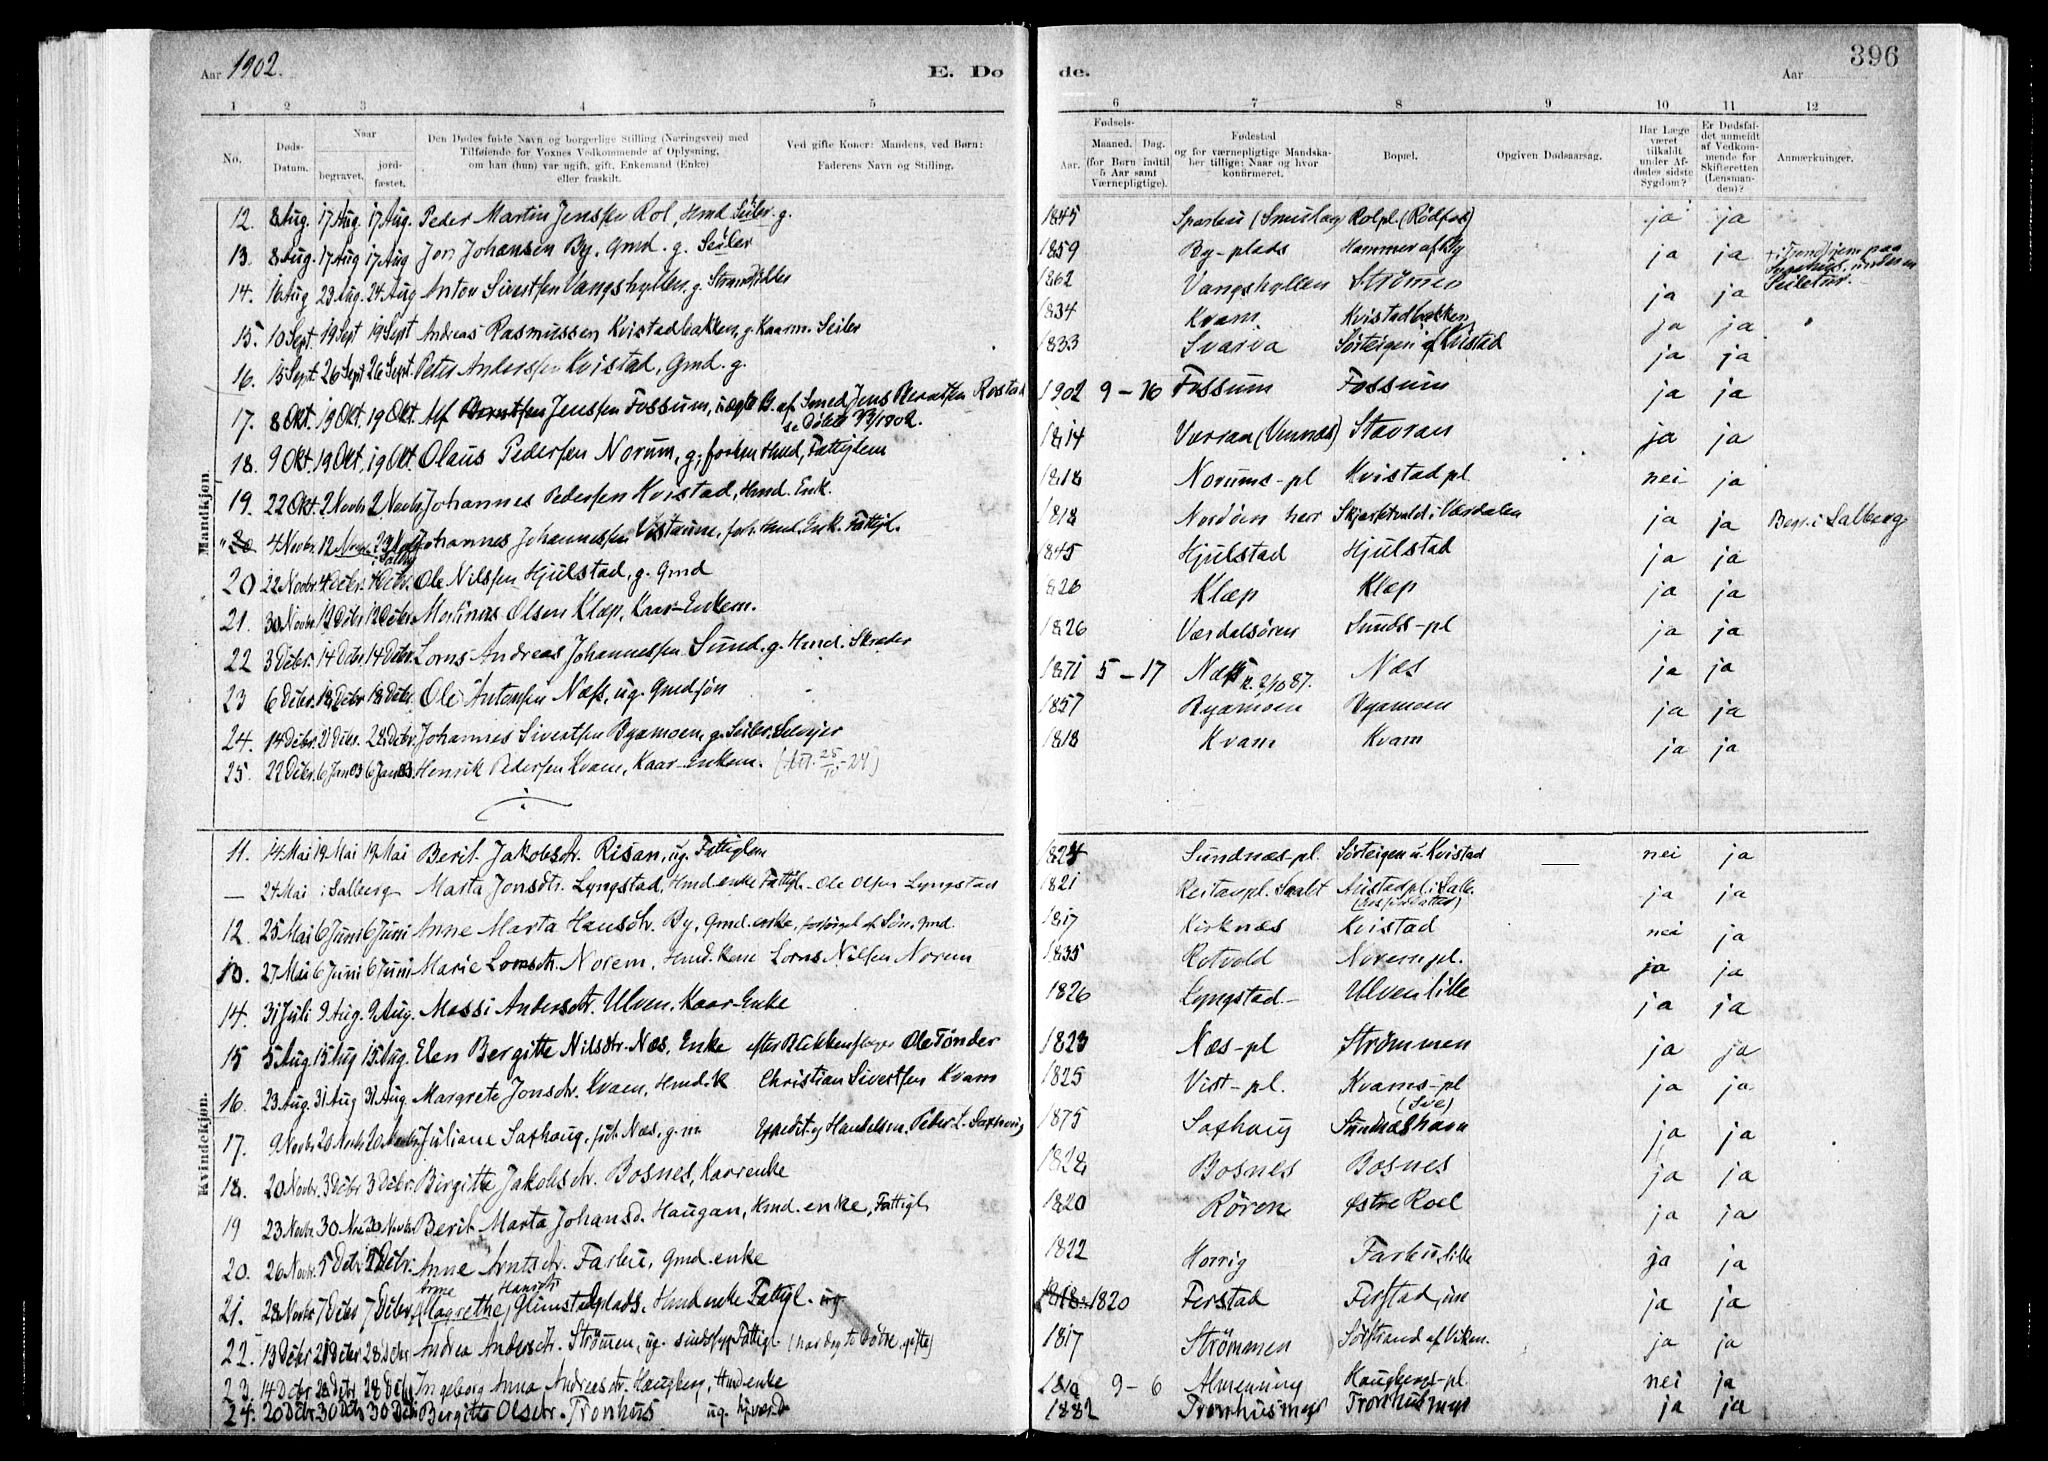 Aar 1902. E. Dø de. Aar 396
1 2 3 4 5 6 7 8 9 10 11 12
No. Døds-Datum. Naar begravet. jord-fæstet. Den Dødes fulde Navn og borgerlige Stilling (Næringsvei) med Tilføiende for Voxnes Vedkommende af Oplysning, om han (hun) var ugift, gift, Enkemand (Enke) eller fraskilt. Ved gifte Koner: Mandens, ved Børn: Faderens Navn og Stilling. Fødsels- Aar. Maaned. Dag. (for Børn indtil 5 Aar samt Værnepligtige). Fødested og for værnepligtige Mandska-ber tillige: Naar og hvor konfirmeret. Bopæl. Opgiven Dødsaarsag. Har Læge været tilkaldt under Af-dødes sidste Sygdom? Er Dødsfal-det anmeldt af Vedkom-mende for Skifteretten (Lensman-den)? Anmærkninger.
Mandkjøn
12. 8 Aug. 17 Aug. 17 Aug. Peder Martin Jenssen Rol, Hmd. Seiler. g. 1845 Rolpl. ja ja
13. 8 Aug. 17 Aug 17 Aug Jon Johansen By, Gmd. g. Seiler 1859 By-plads Hammer af By ja ja
14. 16 Aug 23 Aug. 24 Aug Anton Sivertsen Vangshyllen, g. Strandsidder 1862 Vangshyllen Strömen ja ja
15. 10 Sept. 19 Sept 19 Sept Andreas Rasmussen Kvistadbakken, g. Kaarm. Seiler 1834 Kvam Kvistadbakken ja ja
16. 15 Sept. 26 Sept 26 Sept. Peter Anderssen Kvistad, Gmd. g. 1833 Svarva Sørteigen af Kvistad ja ja
17. 8 Okt. 19 Okt. 19 Okt. Alf Jenssen Fossum, uægte B. af Smed Jens Berntsen Rostad 1902 9 - 16 Fossum Fossum ja ja
18. 9 Okt. 19 Okt. 19 Okt. Olaus Pedersen Norum, g, forhen Hmd, Fattiglem 1814 Værran (Vennes) Stavran ja ja
19. 22 Okt. 2 Novbr. 2 Novbr. Johannes Pedersen Kvistad, Hmd. Enk. 1818 Norums-pl Kvistad pl. nei ja
" 20 4 Novbr. 12 Novbr. Johannes Johannessen Vistaune, forh. Hmd. Enk. Fattigl. 1818 Nordöen her Skjerkvald i Værdalen ja ja Begr. i Salberg
20 22 Novbr. 4 Debr. 4 Debr. Ole Nilssen Hjulstad, g. Gmd 1845 Hjulstad Hjulstad ja ja
21. 30 Novbr. 12 Debr. 12 Debr. Martinus Olsen Klæp, Kaar-Enkem. 1826 Klæp Klæp ja ja
22 3 Debr. 14 Debr. 14 Debr. Lorns Andreas Johannessen Sund, g. Hmd. Skræder 1826 Værdalsøren Sunds-pl ja ja
23 6 Debr. 18 Debr. 18 Debr. Ole Antonsen Næss, ug. Gmdsøn 1871 5 - 17 Næss k. 2/10 87. Næs ja ja
24. 14 Debr. 21 Debr. 28 Debr. Johannes Sivertsen Byamoen, g. Seiler, Selveier 1857 Byamoen Byamoen ja ja
25. 22 Debr. 6 Jan 03 6 Jan 03 Henrik Pedersen Kvam, Kaar-Enkem. (Att. 25/10 - 24) 1818 Kvam Kvam ja ja
Kvindekjøn.
11. 14 Mai 19 Mai 19 Mai Berit Jakobsdr. Risan, ug. Fattiglem 1824 Sundnæs-pl. Sørteigen u. Kvistad nei ja
— 24 Mai i Salberg Marta Jonsdtr. Lyngstad, Hmd. enke Fattigl. Ole Olsen Lyngstad 1821 ja ja
12. 25 Mai 6 Juni 6 Juni Anne Marta Hansdr. By, Gmd. enke, forsørget af Søn, Gmd. 1817 Kirknæs Kvistad nei ja
13. 27 Mai 6 Juni 6 Juni Marie Lornsdr. Norem, Hmd. Kone Lorns Nilsen Norem 1835 Rotvold Norem pl. ja ja
14. 31 Juli 9 Aug. 9 Aug. Massi Andersdr. Ulven, Kaar-Enke 1826 Lyngstad Ulven lille ja ja
15 5 Aug. 15 Aug 15 Aug. Elen Bergitte Nilsdtr. Næs, Enke efter Blikkenslager Ole Tønder 1823 Næs-pl Strömmen ja ja
16. 23 Aug. 31 Aug 31 Aug. Margrete Jonsdr. Kvam, Hmd. k Christian Sivertsen Kvam 1825 Vist-pl. Kvams-pl ja ja
17. 9 Novbr. 20 Novbr. 20 Novbr. Juliane Saxhaug, født Næs, g. m Expedit. og Handelsm. Peder L. Saxhaug 1875 Saxhaug Sundnæshavn ja ja
18. 20 Novbr. 3 Debr 3 Debr. Birgitte Jakobsdr. Bosnes, Kaarenke 1828 Bosnes Bosnes ja ja
19 23 Novbr. 30 Nov. 30 Novbr. Berit Marta Johansd. Haugan, Hmd. enke, Fattigl. 1820 Rören Østre Roel ja ja
20. 26 Novbr. 5 Debr. 5 Debr. Anne Arntsdr. Farbu, Gmd. enke 1822 Horrig Farbu, lille ja ja
21. 28 Novbr 7 Debr 7 Debr. Anne Magrethe Hansdtr Glimstadplads, Hmd enke Fattigl. ug 1818. 1820 Ferstad Ferstad ja ja
22. 13 Debr 28 Debr 28 Debr Andrea Andersdr. Strömen, ug. sindssyg Fattigl. (har dog to Døtre, gifte) 1817 Strömmen Sørstrand af Viken. ja ja
23. 14 Debr. 28 Debr. 28 Debr. Ingeborg Anna Andreasdr. Haugberg, Hmd enke 9 - 6 Almenning Haugberg-pl. nei ja
24. 20 Debr 30 Debr 30 Debr Birgitte Olsdtr. Tronhus ug. 1882 Tronhusmyr Tronhusmyr ja ja